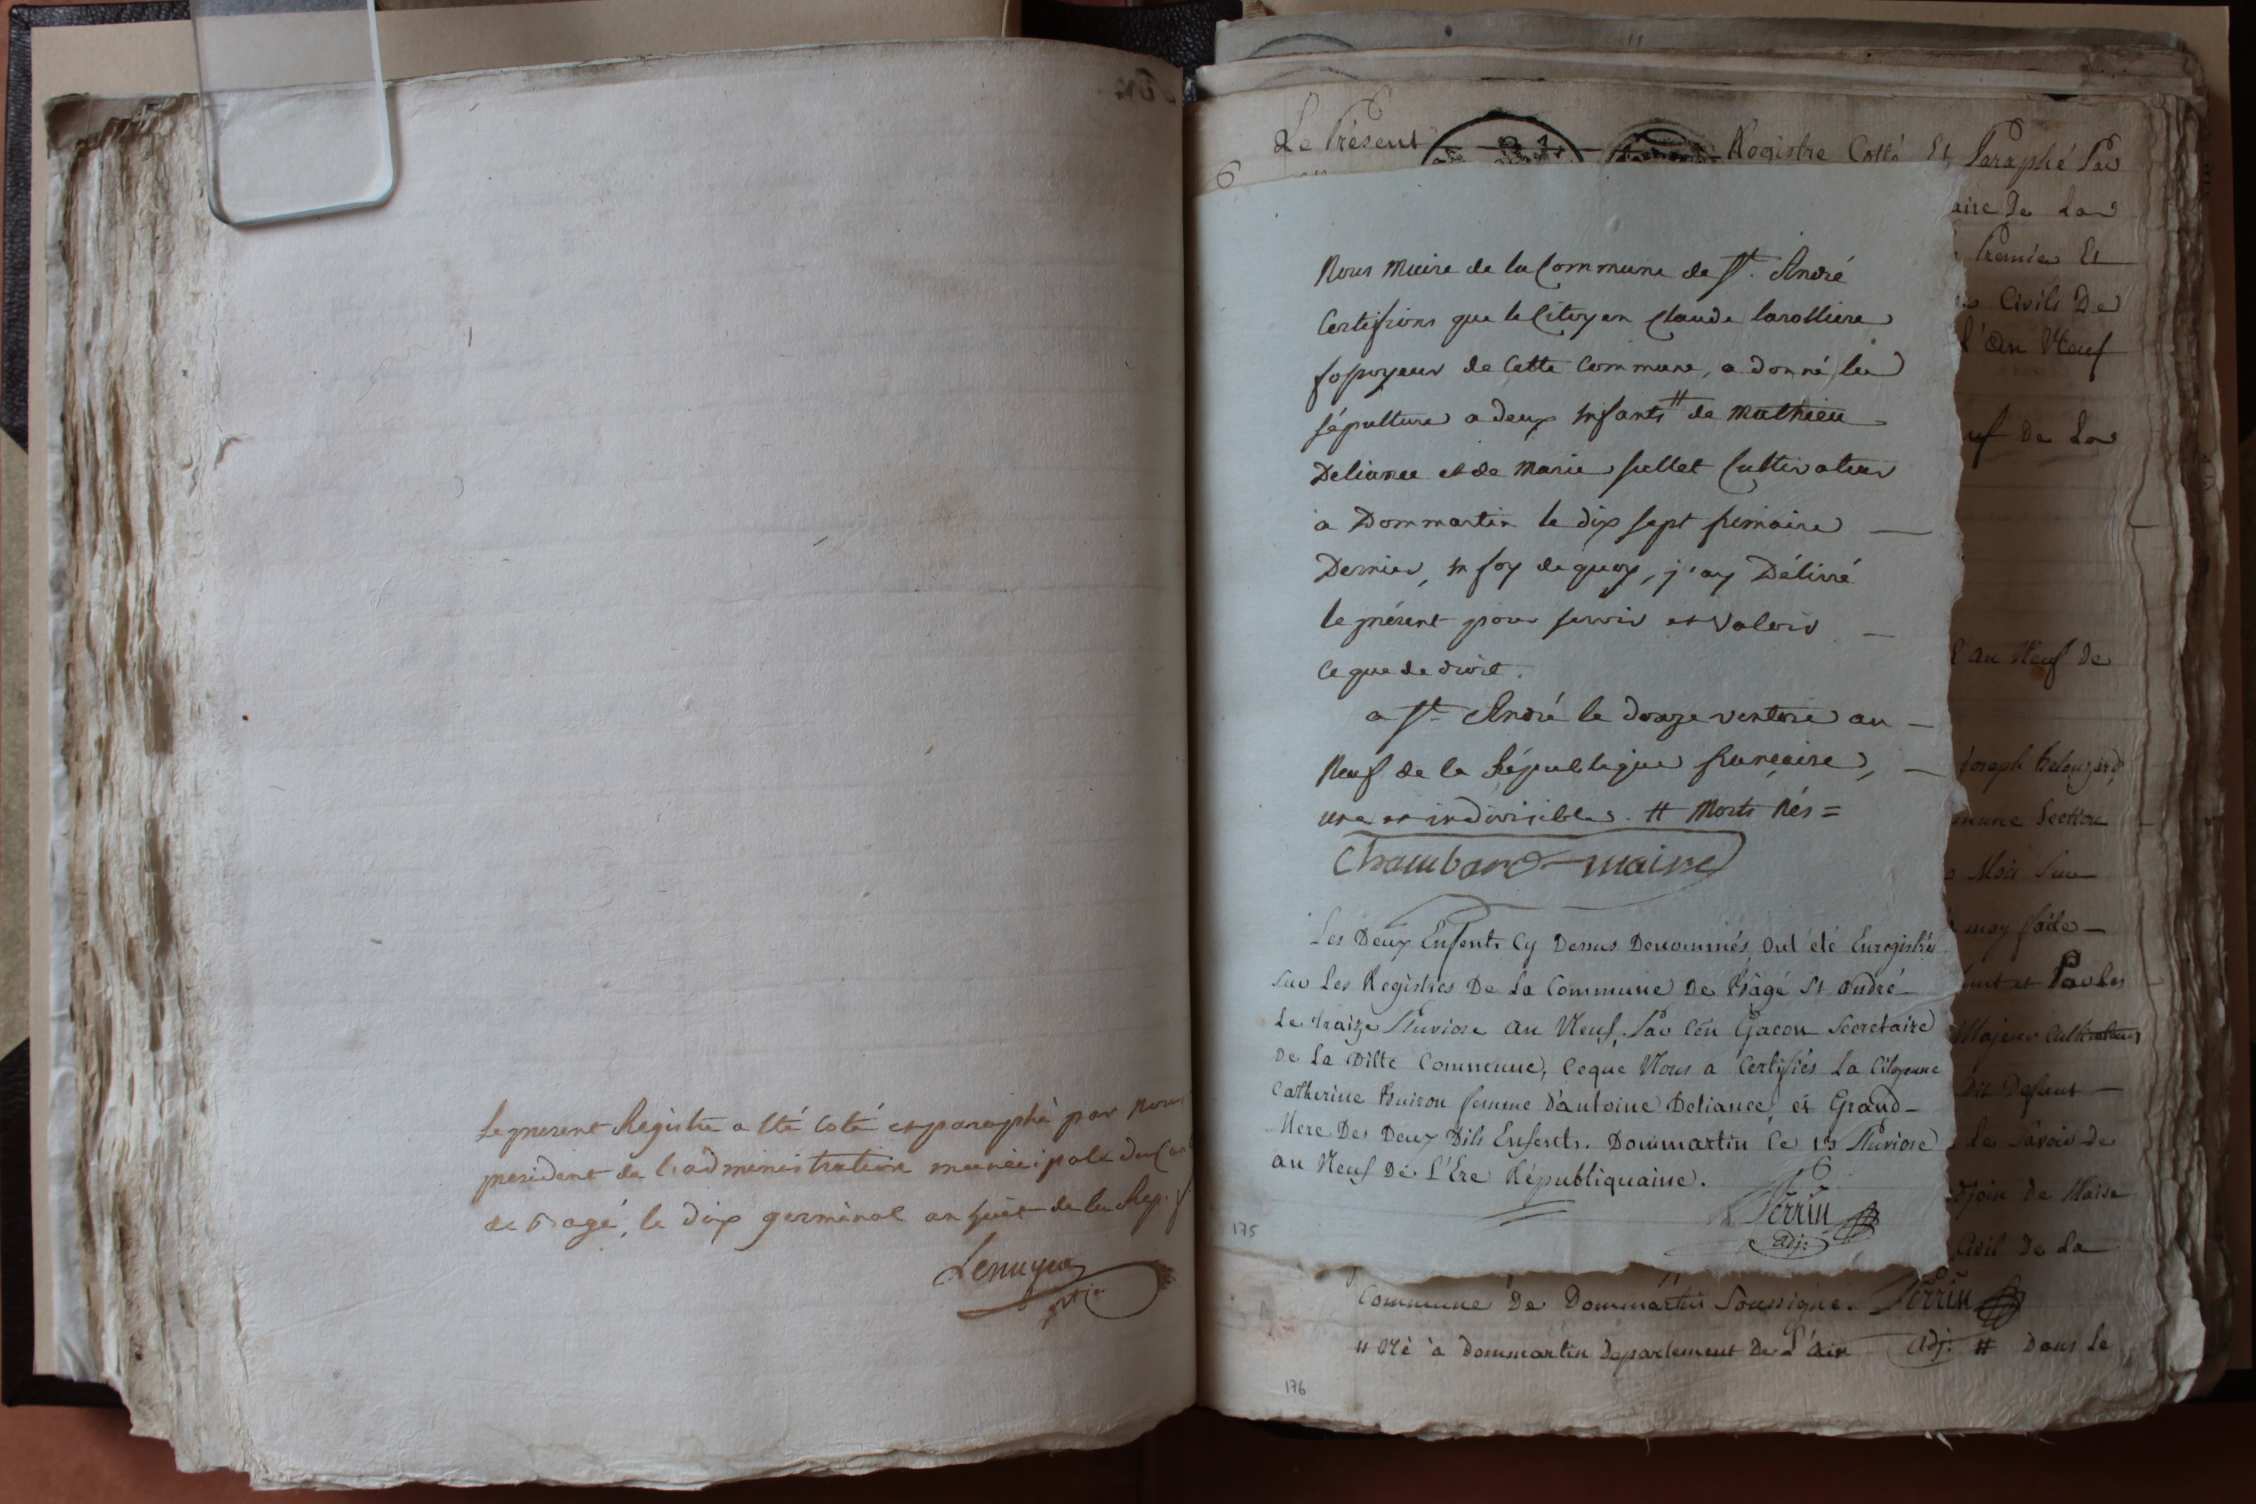 Le present Registre a êté coté et paraphé par nous
president de l'administration municipale du Can
de Bagé, le dix germinal an huit de la Rep. f.
Le Présent Registre Cotté Et Paraphé Par
6
aire De La
Premier Et
Civils De
l'an Neuf
uf De La
Nous Maire de la Commune de St. André
Certifions que le Citoyen Claude Larolliere
fossoyeur de Cette Commune, a donné la
sépulture a deux Enfants # de Mathieu
Deliance et de Marie Cultivateur
a Dommartin le dix sept frimaire
Dernier, En foy de quoy, j'ay Délivré
le présent pour servir et valoir
Ce que de droit.
a St. André le douze ventose an
Neuf de la République françaire,
une et indivisible. # Morts Nés =
Chambard maire
Les Deux Enfents Cy Dessus Denommés, Ont été Enregistrés
Sur Les Registres De La Commune De Bâgé St André
Le traize Pluviose an Neuf, Par Cen Gacon Secretaire
De La Ditte Commune, Ceque Nous a Certifiés La Citoyenne
Catherine Buison femme D'antoine Deliance, et Grand
Mere Des Deux Dits Enfents. Dommartin Ce 13 Pluviose
an Neuf De L'Ere Républiquaine.
Perrin
adj:
175
an Neuf de
Joseph
mune Section
Moi
moy faite
Par Les
Majeur Cultivateur
Defunt
de
de Maire
Civil De La
Commune De Dommartin Soussigné. Perrin
" Né à Dommartin Departement De L'ain adj: # Dans Le
176